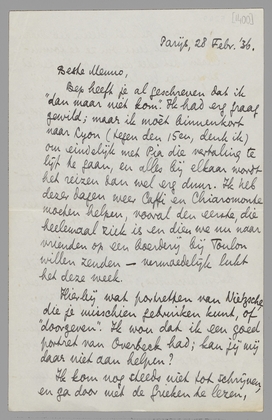 [400]
Parijs, 28 Febr. '36.
Beste Menno,
Bep heeft je al geschreven dat ik
"dan maar niet kom". Ik had erg graag
gewild; maar ik moèt binnenkort
naar Lyon (tegen den 15en, denk ik)
om eindelijk met Pia die vertaling te
lijf te gaan, en alles bij elkaar wordt
het reizen dan wel erg duur. Ik heb
dezer dagen weer Caffi en Chiaromonte
mochen helpen, vooral den eerste, die
heelemaal ziek is en dien we nu naar
vrienden op een boerderij bij Toulon
willen zenden — vermoedelijk lukt
het deze week.
Hierbij wat portretten van Nietzsche
die je misschien gebruiken kunt, of
"doorgeven". Ik wou dat ik een goed
portret van Overbeck had; kan jij mij
daar niet aan helpen?
Ik kom nog steeds niet tot schrijven
en ga door met de Grieken te lezen,